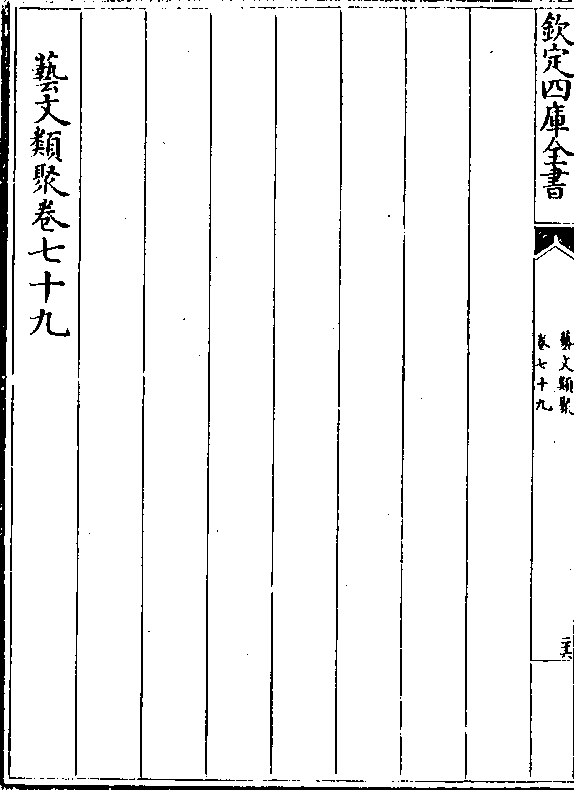 欽定四庫全書
藝文類聚
卷七十九
藝文類聚卷七十九